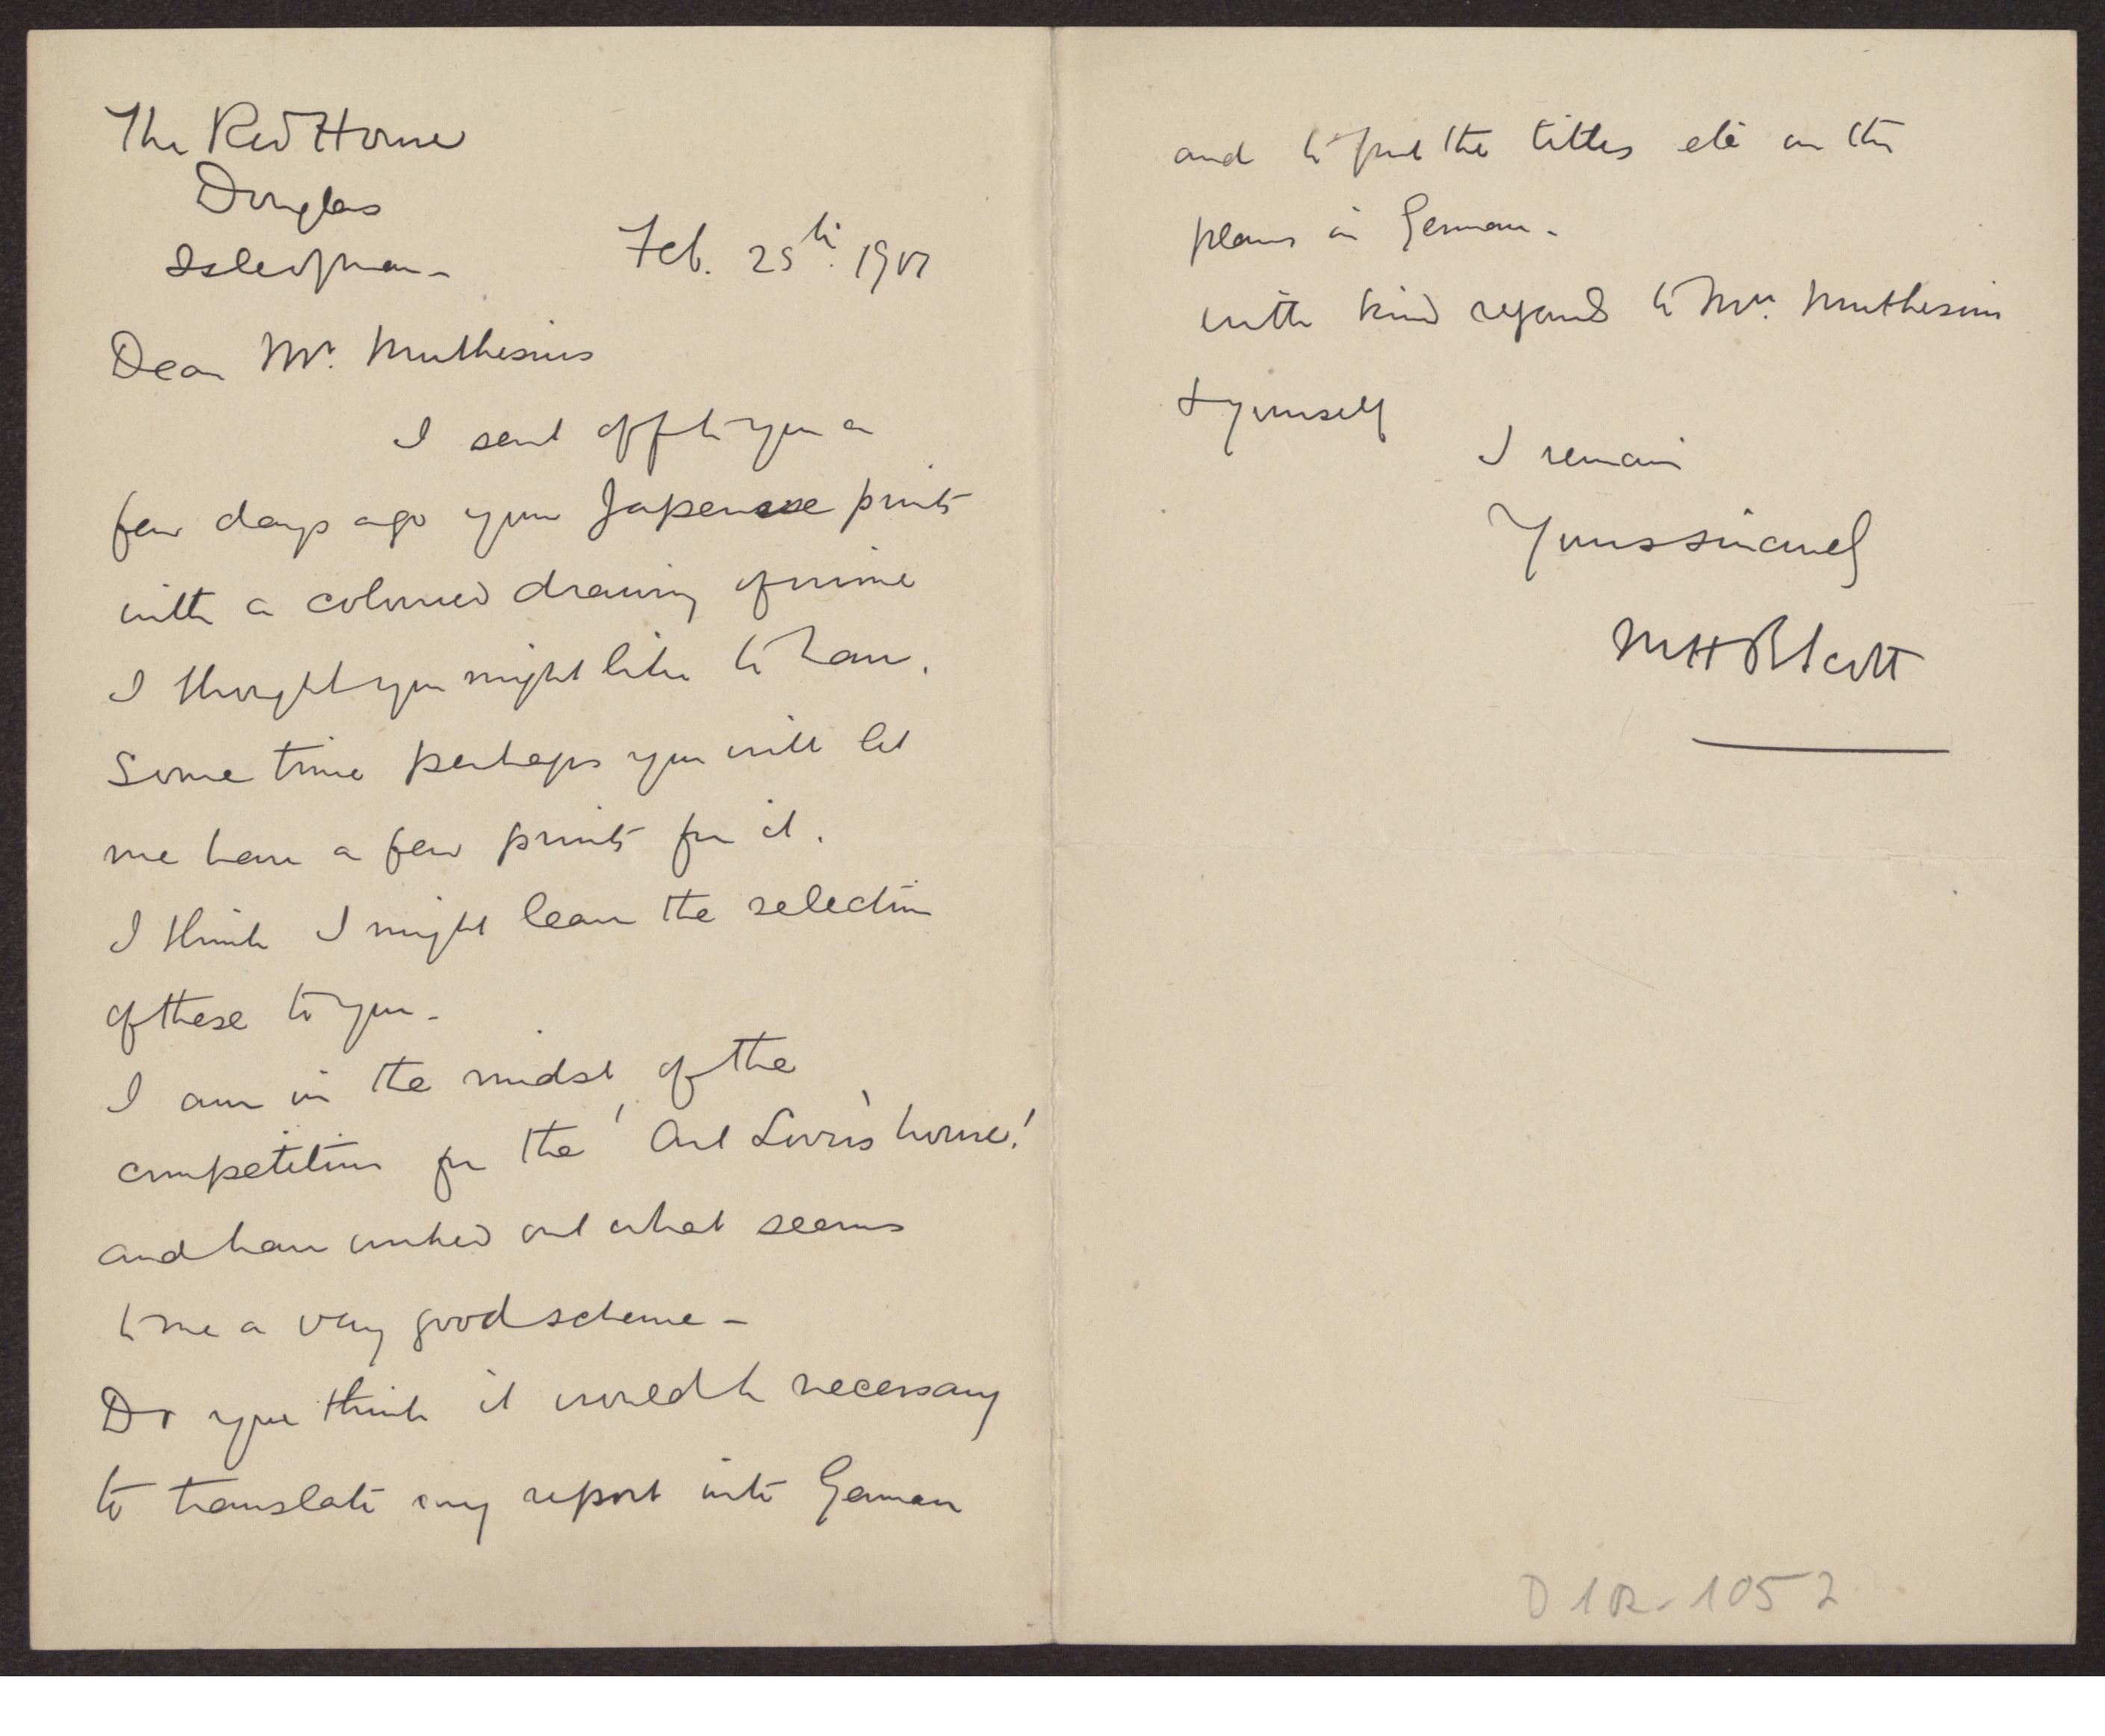 The Red House
Douglas
Isle of man -
Feb. 25th. 1901
Dear Mr. Muthesius
I sent off to you a
few days ago your Japenese prints
with a coloured drawing of mine
I thought you might like to have.
Some time perhaps you will let
me have a few prints for it.
I think I might leave the selection
of these to you -
I am in the midst of the
competition for the 'Art Lover's house'.
and have worked out what seems
to me a very good scheme -
Do you think it would be necessary
to translate my report into German
and to put the titles etc on the
plans in German -
with kind regards to Mrs. Muthesius
& yourself
I remain
Yours sincerely
MHBScott
D 102-1052